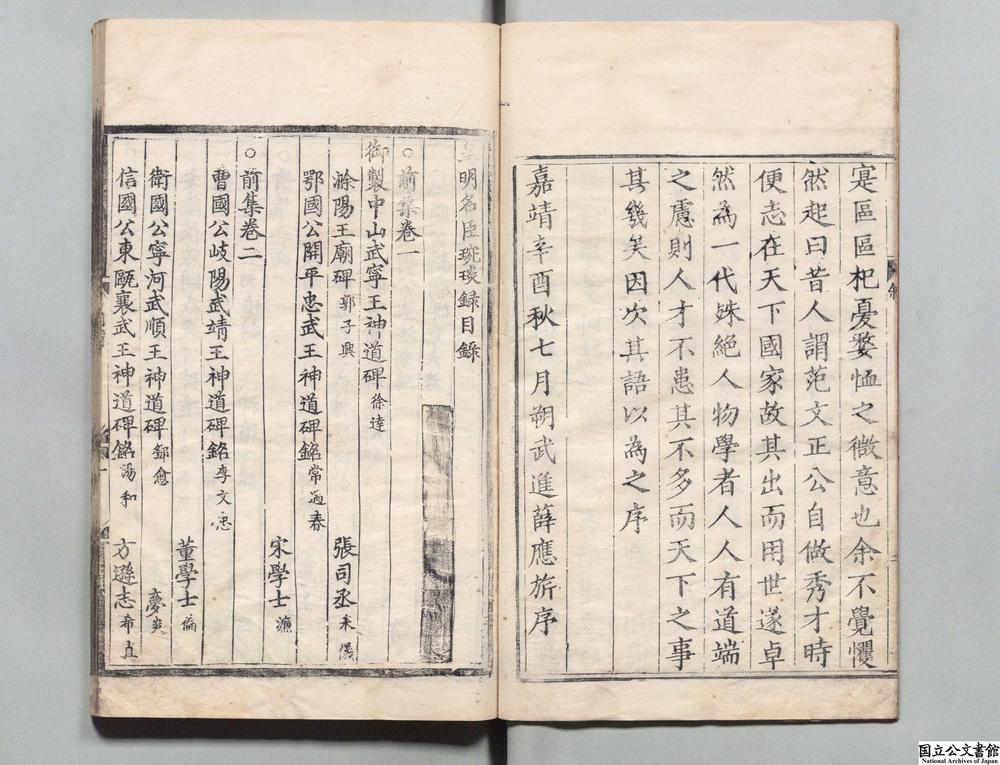 寔區區杞憂嫠恤之微意也余不覺懼
然起曰昔人謂范文正公自做秀才時
便志在天下國家故其出而用世遂卓
然為一代殊絕人物學者人人有道端
之慮則人才不患其不多而天下之事
其幾矣因次其語以為之序
嘉靖辛酉秋七月朔武進薛應旂序
皇明名臣琬琰録目錄
○前集卷一
御製中山武寧王神道碑 徐達
滁陽王廟碑 郭子興 張司丞 来儀
鄂國公開平忠武王神道碑銘 常遇春 宋學士 濂
○前集卷二
曹國公岐陽武靖王神道碑銘 李文忠 董學士 倫
衛國公寧河武順王神道碑 鄧愈
信國公東甌襄武王神道碑銘 湯和 方遜志 希直
国立公文書館
National Archives of Japan